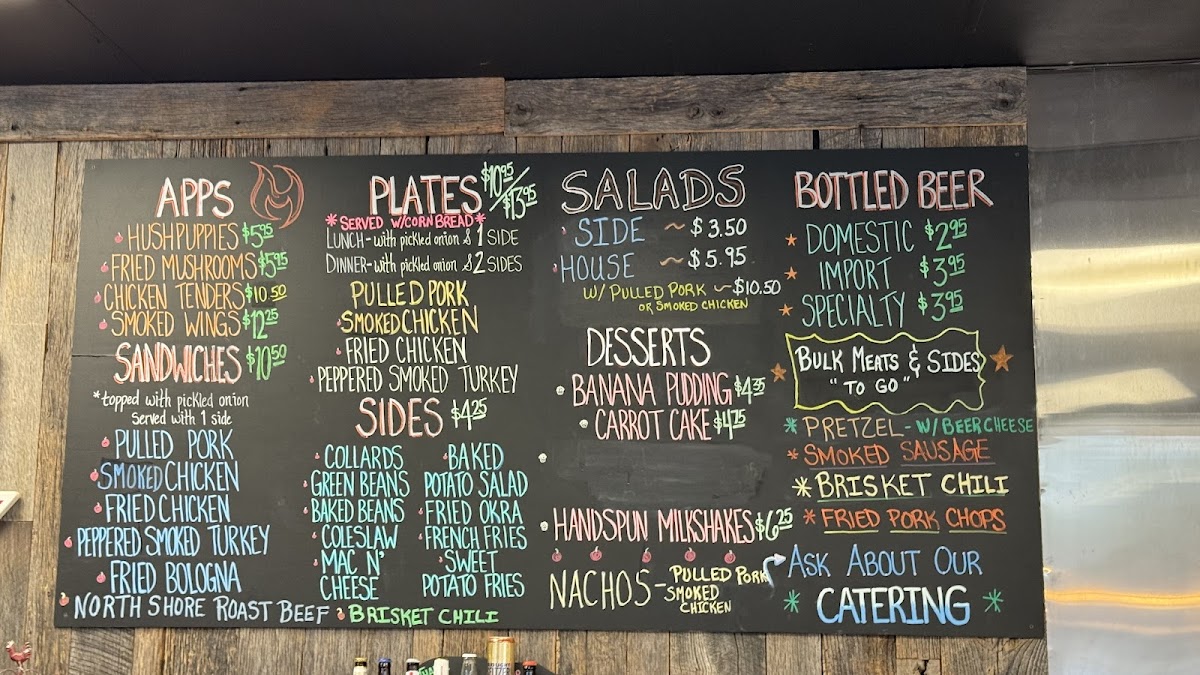 APPS
HUSHPUPPIES $5.95
FRIED MUSHROOMS $5.95
CHICKEN TENDERS $10.50
SMOKED WINGS $12.25
SANDWICHES $10.50
*topped with pickled onion
Served with 1 side
PULLED PORK
SMOKED CHICKEN
FRIED CHICKEN
PEPPERED SMOKED TURKEY
FRIED BOLOGNA
NORTH SHORE ROAST BEEF
PLATES $10.95/$13.95
*SERVED W/CORN BREAD*
LUNCH - with pickled onion & 1 SIDE
DINNER - with pickled onion & 2 SIDES
PULLED PORK
SMOKED CHICKEN
FRIED CHICKEN
PEPPERED SMOKED TURKEY
SIDES $4.25
COLLARDS
GREEN BEANS
BAKED BEANS
COLESLAW
MAC N'
CHEESE
BAKED
POTATO SALAD
FRIED OKRA
FRENCH FRIES
SWEET
POTATO FRIES
BRISKET CHILI
SALADS
SIDE ~ $3.50
HOUSE ~ $5.95
W/ PULLED PORK ~ $10.50
OR SMOKED CHICKEN
DESSERTS
BANANA PUDDING $4.35
CARROT CAKE $4.75
HANDSPUN MILKSHAKES $6.25
NACHOS - PULLED PORK
SMOKED
CHICKEN
BOTTLED BEER
DOMESTIC $2.95
IMPORT $3.95
SPECIALTY $3.95
BULK MEATS & SIDES
"TO GO"
* PRETZEL - W/ BEER CHEESE
* SMOKED SAUSAGE
* BRISKET CHILI
* FRIED PORK CHOPS
ASK ABOUT OUR
* CATERING *